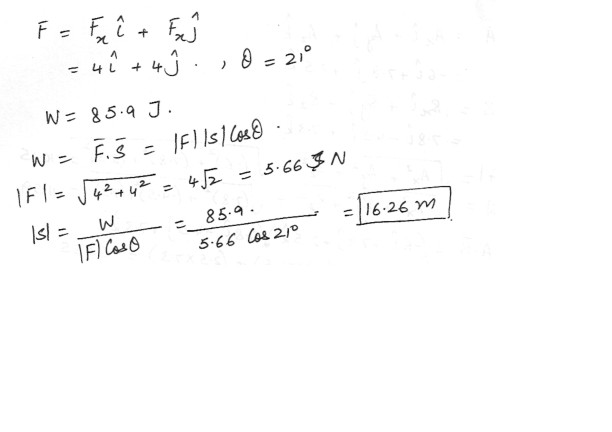 F̄ = F̄ₓ î + F̄ₓ ĵ
= 4 î + 4 ĵ . , θ = 21°
W = 85.9 J.
W = F̄.S̄ = |F||s| Cosθ .
|F| = √(4²+4²) = 4√2 = 5.66 N
|s| = W / |F| Cosθ = 85.9. / 5.66 Cos 21° = 16.26 m